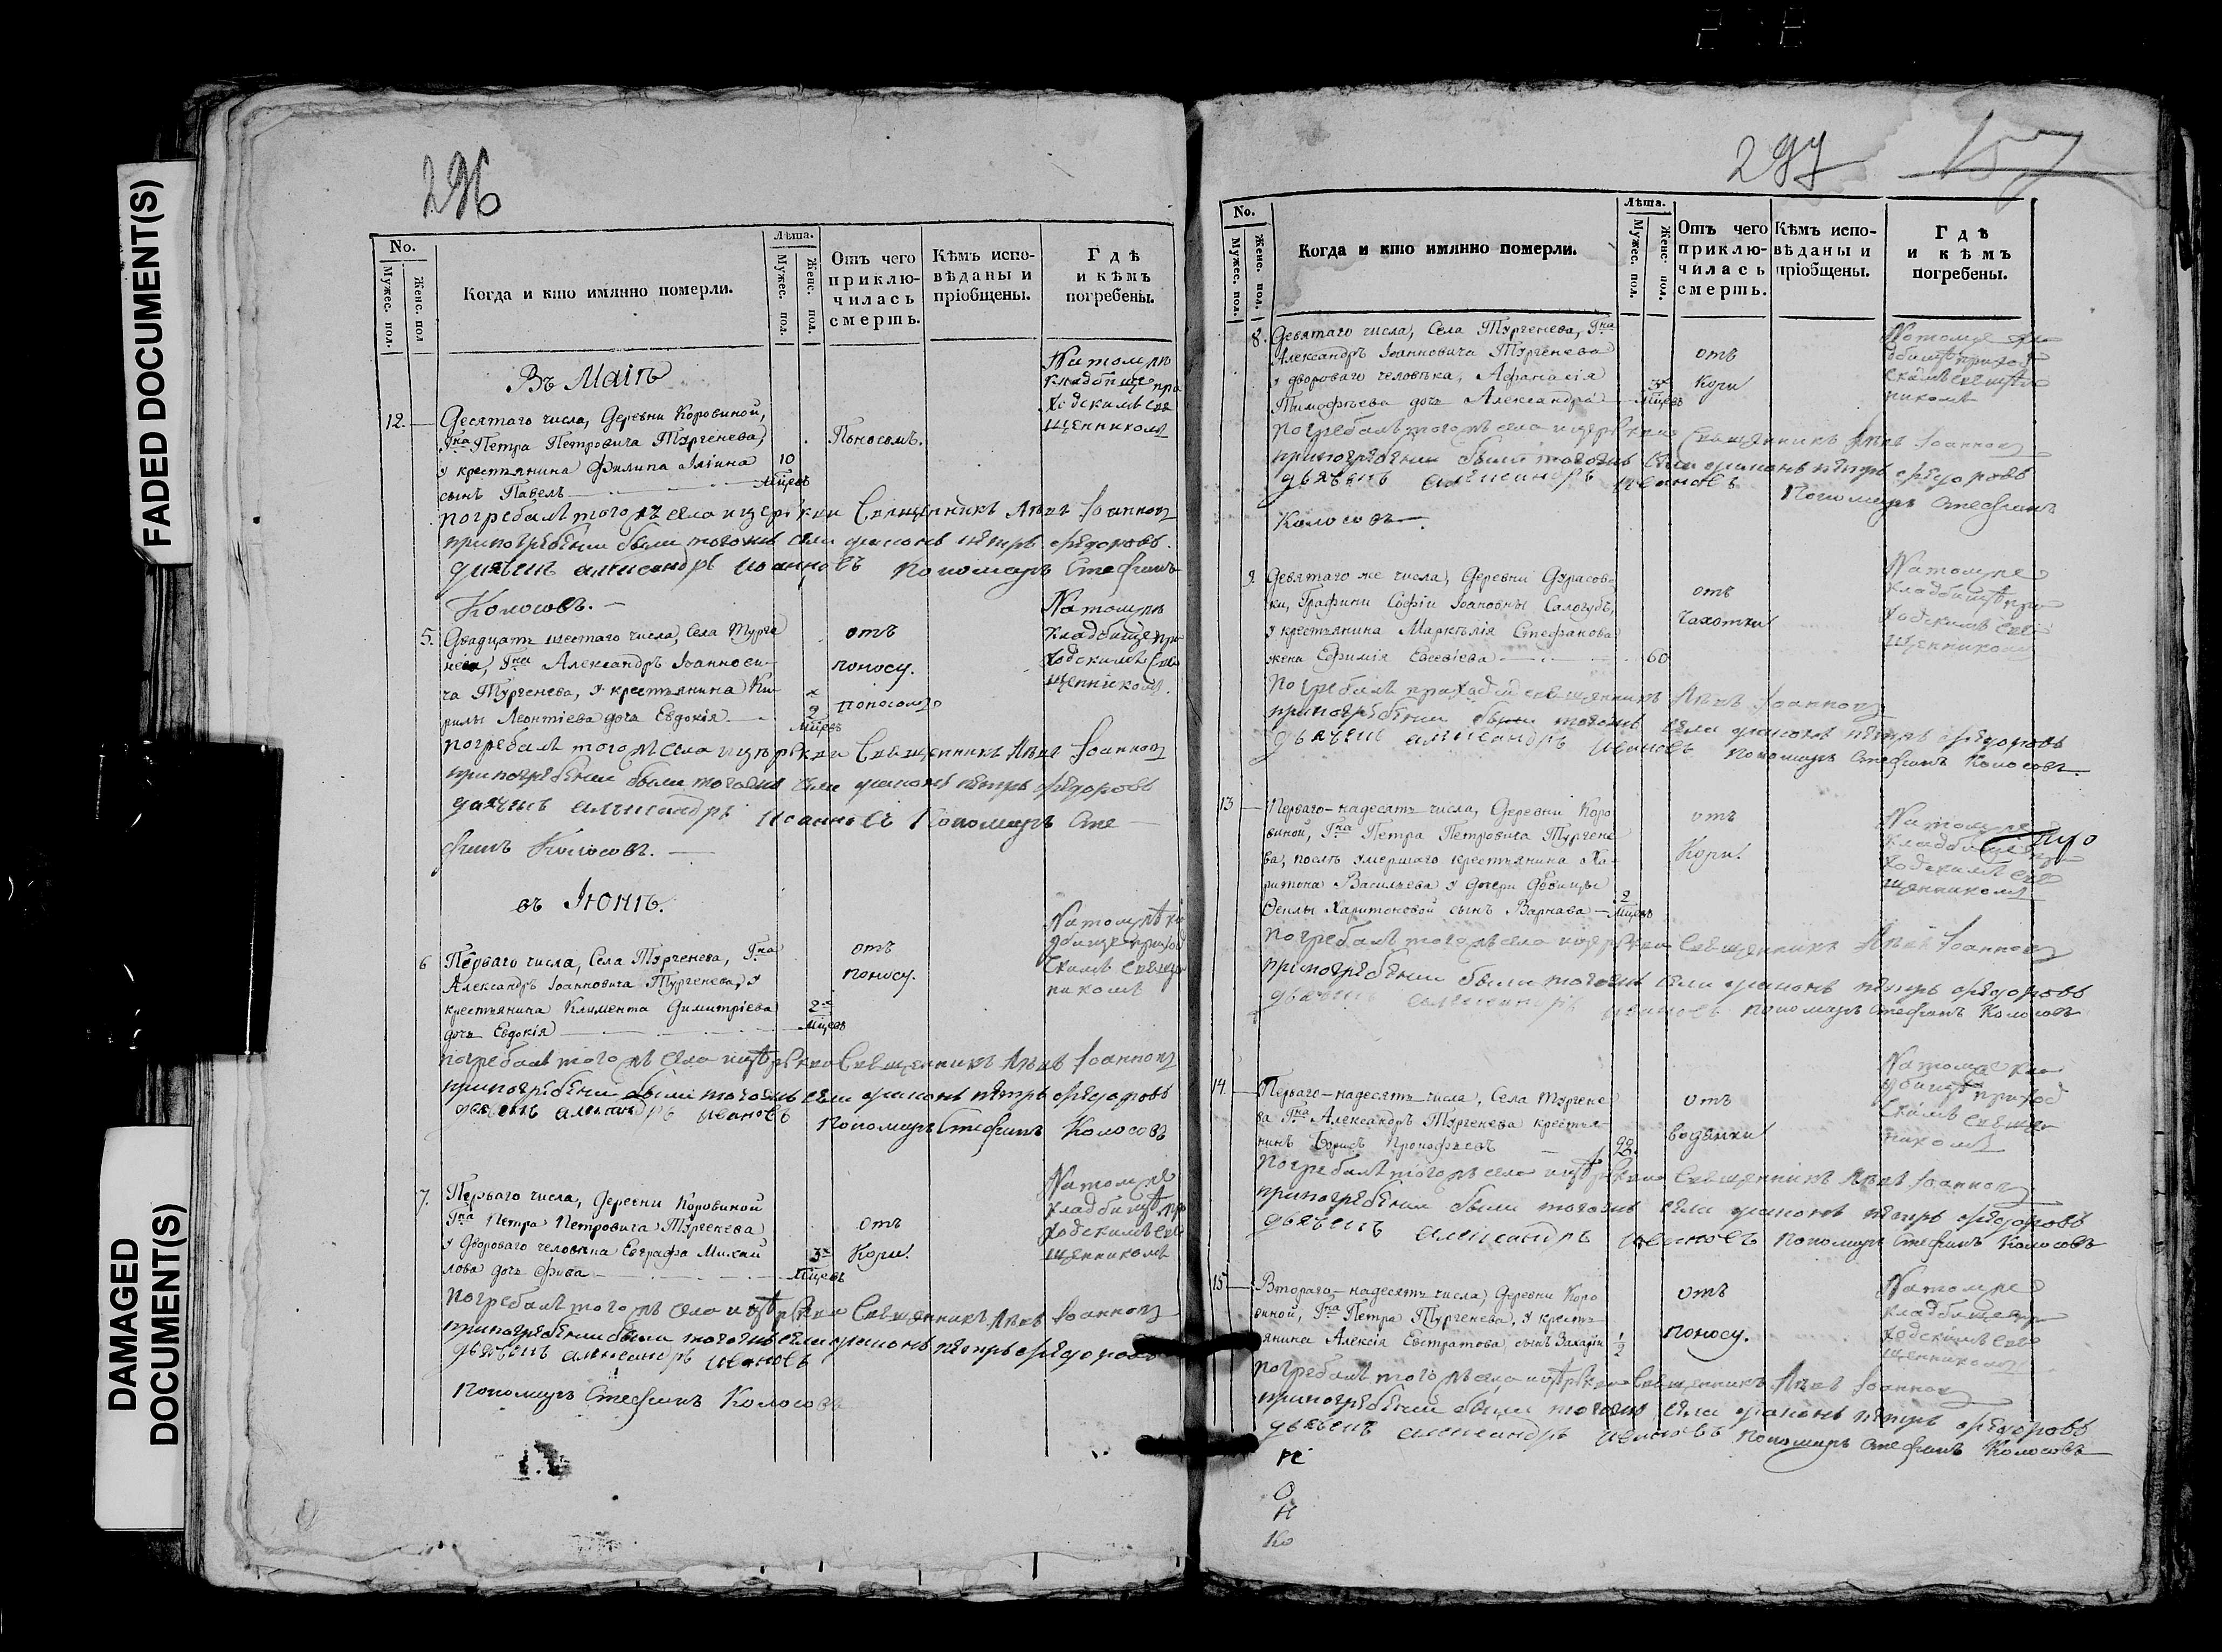 FADED DOCUMENT(S)
DAMAGED
DOCUMENT(S)
296
No.
Мужес. пол.
Женс. пол
Когда и кто имянно померли.
Лѣта.
Мужес. пол.
Женс. пол.
Отъ чего
приклю-
чилась
смерть.
Кѣмъ испо-
вѣданы и
пріобщены.
Гдѣ
и кѣмъ
погребены.
Въ Маіѣ
12.
Десятаго числа, Деревни Коровиной,
Гна Петра Петровича Тургенева,
у крестьянина Филипа Иліина
сынъ Павелъ
10
мцевъ
Поносомъ.
На томже
кладбище при
ходскимъ свя
щенникомъ
погребалъ тогожъ села церкви Священникъ Левъ Іоанновъ
припогребении были тогожъ села диаконъ петръ федоровъ
диячекъ александръ иоанновъ пономарь Стефанъ
Колосовъ.
5.
Двадцать шестаго числа, Села Турге
нева, Гна Александръ Іоаннови-
ча Тургенева, у крестьянина Ки-
рилы Леонтіева дочь Евдокія
2
мцевъ
отъ
поносу.
поносомъ
На томже
кладбище при
ходскимъ свя
щенникомъ.
погребалъ тогожъ села церкви Священникъ Левъ Іоанновъ
припогребении были тогожъ села диаконъ петръ федоровъ
диячекъ александръ иоанновъ Пономарь Сте
фанъ Колосовъ.
въ Іюнѣ.
6
Перваго числа, Села Тургенева, Гна
Александръ Іоанновича Тургенева, у
крестьянина Климента Димитріева
дочь Евдокія
2хъ
мцевъ
отъ
поносу.
На томже кла
дбище приход
скимъ священ
никомъ
погребалъ тогожъ села церкви Священникъ Левъ Іоанновъ
припогребении были тогожъ села диаконъ петръ федоровъ
дьячекъ александръ ивановъ пономарь Стефанъ Колосовъ
7.
Перваго числа, Деревни Коровиной
Гна Петра Петровича Тургенева
у Двороваго человѣка Евграфа Михаи
лова дочь Фива
3хъ
мцевъ
отъ
Кори.
На томже
кладбище при
ходскимъ свя
щенникомъ
погребалъ тогожъ села церкви Священникъ Левъ Іоанновъ
припогребении были тогожъ села диаконъ петръ федоровъ
дьячекъ александръ ивановъ
пономарь Стефанъ Колосовъ
297
157
No.
Мужес. пол.
Женс. пол.
Когда и кто имянно померли.
Лѣта.
Мужес. пол.
Женс. пол.
Отъ чего
приклю-
чилась
смерть.
Кѣмъ испо-
вѣданы и
пріобщены.
Гдѣ
и кѣмъ
погребены.
8.
Девятаго числа, Села Тургенева, Гна
Александръ Іоанновича Тургенева
у двороваго человѣка, Афанасія
Тимофѣева дочь Александра
3х
мцевъ
отъ
Кори
На томже кла
дбище приход
скимъ священ
никомъ
погребалъ тогожъ села церкви Священникъ Левъ Іоанновъ
припогребении были тогожъ села диаконъ петръ федоровъ
дьячекъ александръ ивановъ Пономарь Стефанъ
Колосовъ.
9.
Девятаго же числа, Деревни Дурасов-
ки, Графини Софіи Іоановны Сологубъ,
у крестьянина Маркѣлія Стефанова
жена Ефимія Евсевіева
60
отъ
Чахотки
На томже
кладбище при
ходскимъ свя
щенникомъ
погребалъ священникъ Левъ Іоанновъ
припогребении были тогожъ села диаконъ петръ федоровъ
дьячекъ александръ ивановъ пономарь Стефанъ Колосовъ
13
Перваго-надесять числа, Деревни Коро
виной, Гна Петра Петровича Тургене
ва, послѣ умершаго крестьянина Ха-
ритона Васильева у дочери дѣвицы
Харитоновой сынъ Варнава
2
мцевъ
отъ
Кори.
На томже
кладбище при
ходскимъ свя
щенникомъ
погребалъ тогожъ села церкви Священникъ Левъ Іоанновъ
припогребении были тогожъ села диаконъ петръ федоровъ
дьячекъ александръ ивановъ пономарь Стефанъ Колосовъ
14.
Перваго-надесять числа, Села Тургене
ва Гна Александръ Тургенева крестья
нинъ Борисъ Прокофьевъ
28.
отъ
водянки
На томже кла
дбище приход
скимъ священ
никомъ
погребалъ тогожъ села церкви Священникъ Левъ Іоанновъ
припогребении были тогожъ села диаконъ петръ федоровъ
дьячекъ александръ ивановъ пономарь Стефанъ Колосовъ
15
Втораго-надесять числа, Деревни Коро
виной, Гна Петра Тургенева, у кресть-
янина Алексія Евстратова сынъ Захарій
1/2
отъ
поносу.
На томже
кладбище при
ходскимъ свя
щенникомъ
погребалъ тогожъ села церкви Священникъ Левъ Іоанновъ
припогребении были тогожъ села диаконъ петръ федоровъ
дьячекъ александръ ивановъ пономарь Стефанъ Колосовъ